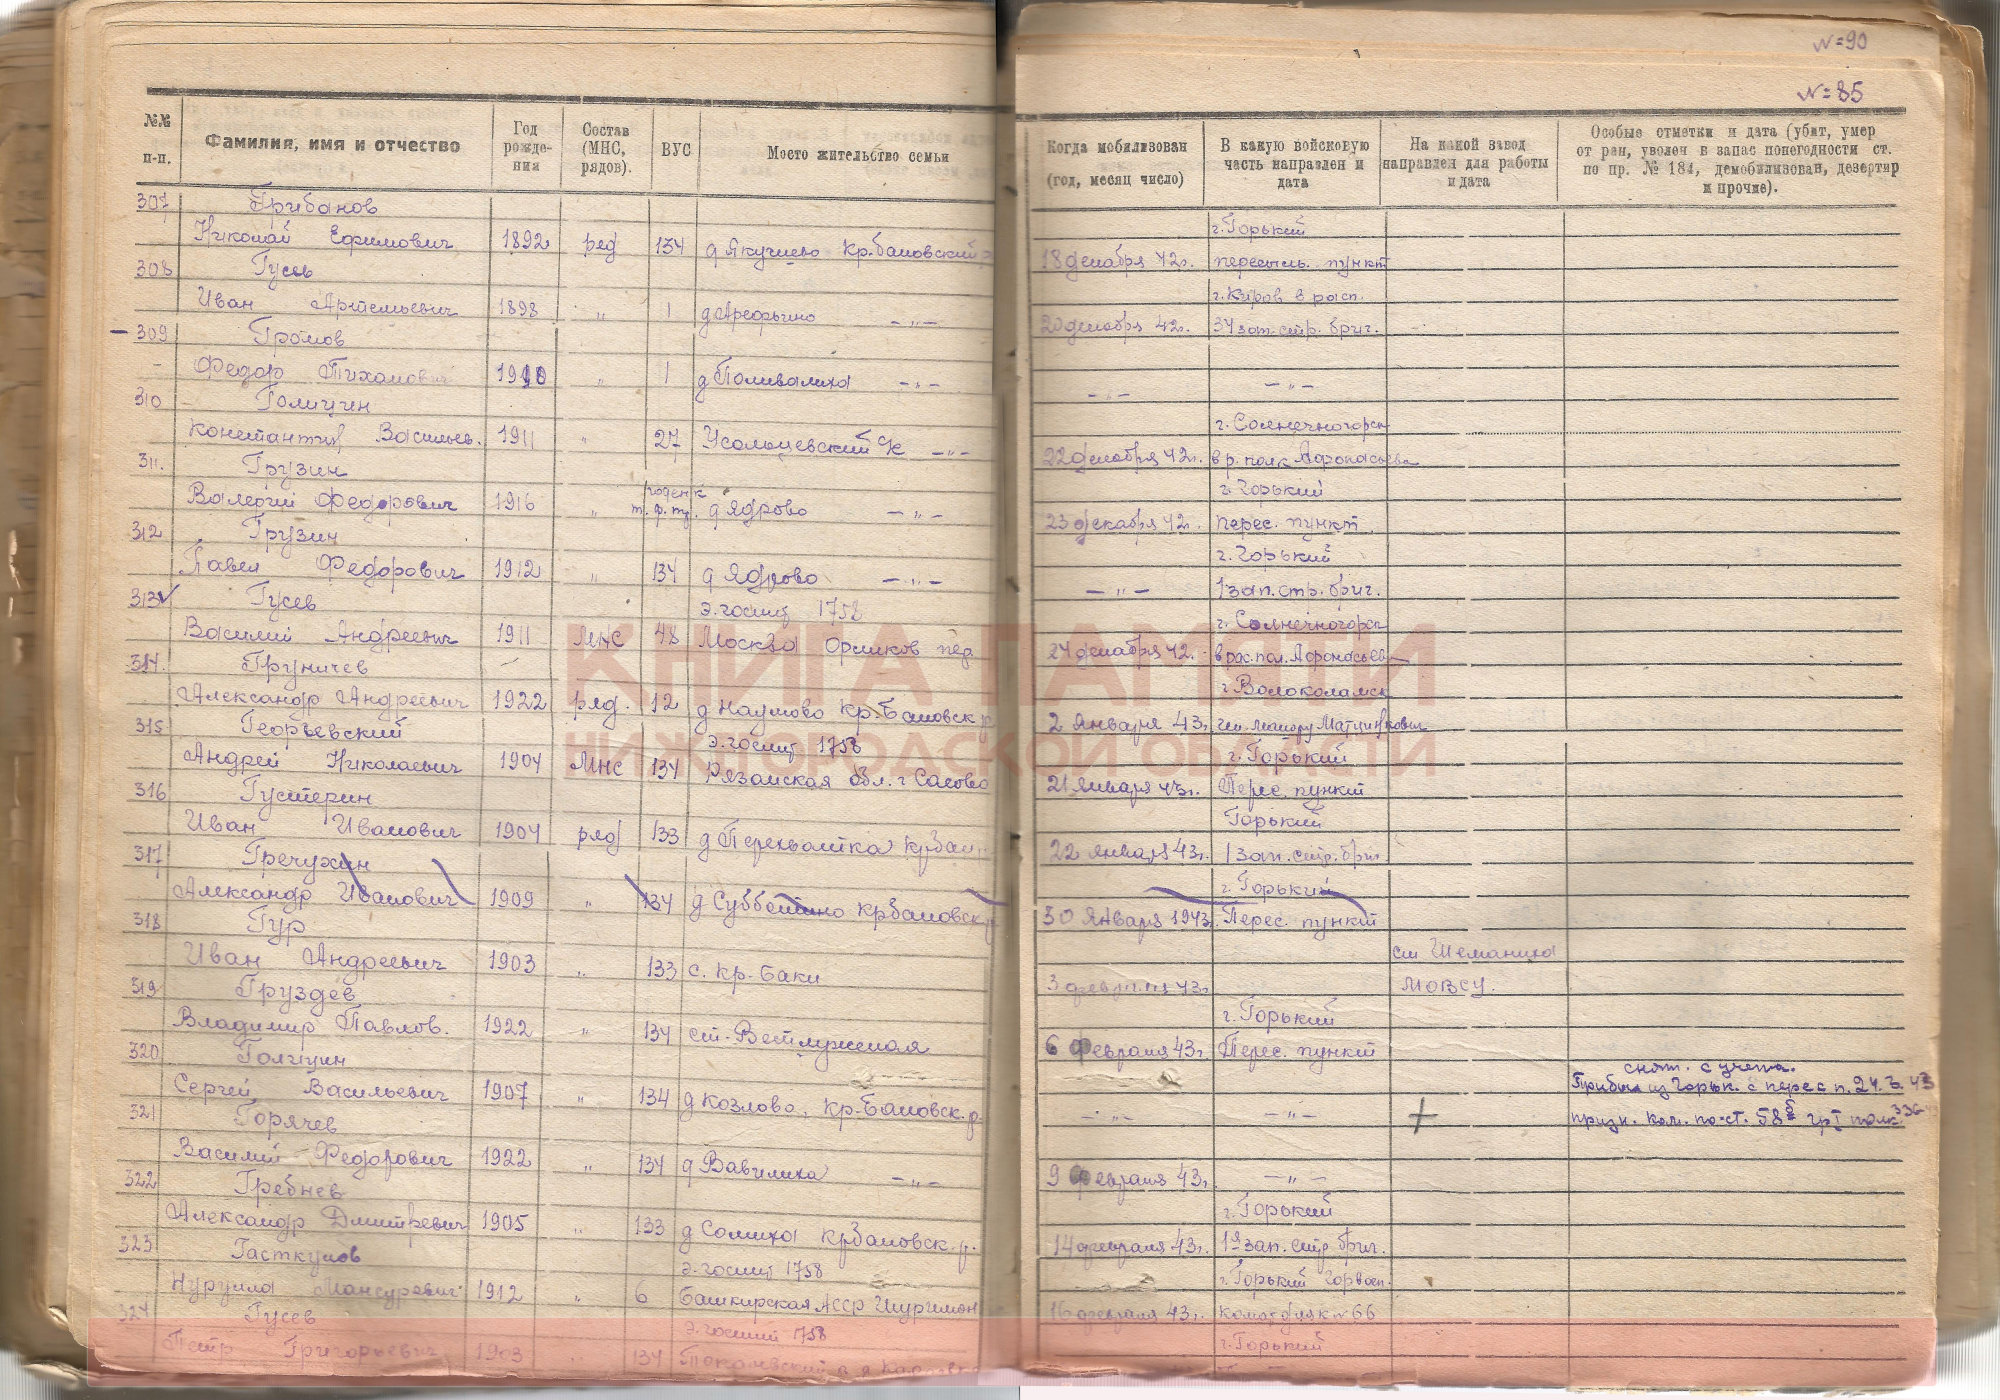 №=90
№=85
№№ п-п.
Фамилия, имя и отчество
Год рождения
Состав (МНС, рядов).
ВУС
Место жительство семьи
Когда мобилизован (год, месяц число)
В какую войсковую часть направлен и дата
На какой завод направлен для работы и дата
Особые отметки и дата (убит, умер от ран, уволен в запас по негодности ст. по пр. № 184, демобилизован, дезертир и прочие).
307 Грибанов
г. Горький
Николай Ефимович 1892 ряд 134 д Якушево Кр.баковский р 18 декабря 42г. пересыль. пункт
308 Гусев
г. Киров в расп.
Иван Артемьевич 1898 „ 1 д Арефьино –„– 20 декабря 42г. 34 зап. стр. бриг.
– 309 Громов
Федор Тихонович 1910 „ 1 д Поливаниха –„– –„– –„–
310 Голицин
г. Солнечногорск
Константин Васильев. 1911 „ 27 Усольцевский с/с –„– 22 декабря 42г. в р. полк Афонасьева
311. Грузин
годен к
г. Горький
Валерий Федорович 1916 „ д Ядрово –„– 23 декабря 42г. перес. пункт.
312 Грузин
г. Горький
Павел Федорович 1912 „ 134 д Ядрово –„– –„– 1 зап. стр. бриг.
313 Гусев
э. госпит 1758
г. Солнечногорск
Василий Андреевич 1911 МНС 48 Москва Орликов пер 24 декабря 42г. Афонасьев
314. Груничев
г. Волоколамск
Александр Андреевич 1922 ряд. 12 д Наумово Кр-Баковск р 2 января 43г. ген. майору
315 Георьевский
э. госпит 1758
г. Горький
Андрей Николаевич 1904 МНС 134 Рязанская обл. г Сасово 21 января 43г. Перес. пункт
316 Густерин
Горький
Иван Иванович 1904 ряд 133 д 22 января 43г. 1 зап. стр. бриг.
317 Гречухин
г. Горький
Александр Иванович 1909 „ 134 д Субботино Крбаковск р 30 января 1943 Перес. пункт
318 Гур
ст Шеманиха
Иван Андреевич 1903 „ 133 с. Кр-Баки 3 февраля 43г. МОВСУ.
319 Груздев
г. Горький
Владимир Павлов. 1922 „ 134 ст. Ветлужская 6 февраля 43г. Перес. пункт
320 Голицин
снят. с учета.
Прибыл из Горьк. с перес п. 24.3.43
Сергей Васильевич 1907 „ 134 д Козлово, Кр-Баковск. р. –„– –„– +
призн. ком. по ст. 58б гр I 336
321 Горячев
Василий Федорович 1922 „ 134 д Вавилиха –„– 9 февраля 43г. –„–
322 Гребнев
г. Горький
Александр Дмитревич 1905 „ 133 д Сомиха Крбаковск. р. 14 февраля 43г. 1я зап. стр бриг.
323 Гасткулов
э. госпит 1758
г. Горький
Мансурович 1912 „ 6 Башкирская АССР 16 февраля 43г. № 66
324 Гусев
э. госпит 1758
г. Горький
Петр Григорьевич 1903 134
КНИГА ПАМЯТИ
НИЖГОРОДСКОЙ ОБЛАСТИ